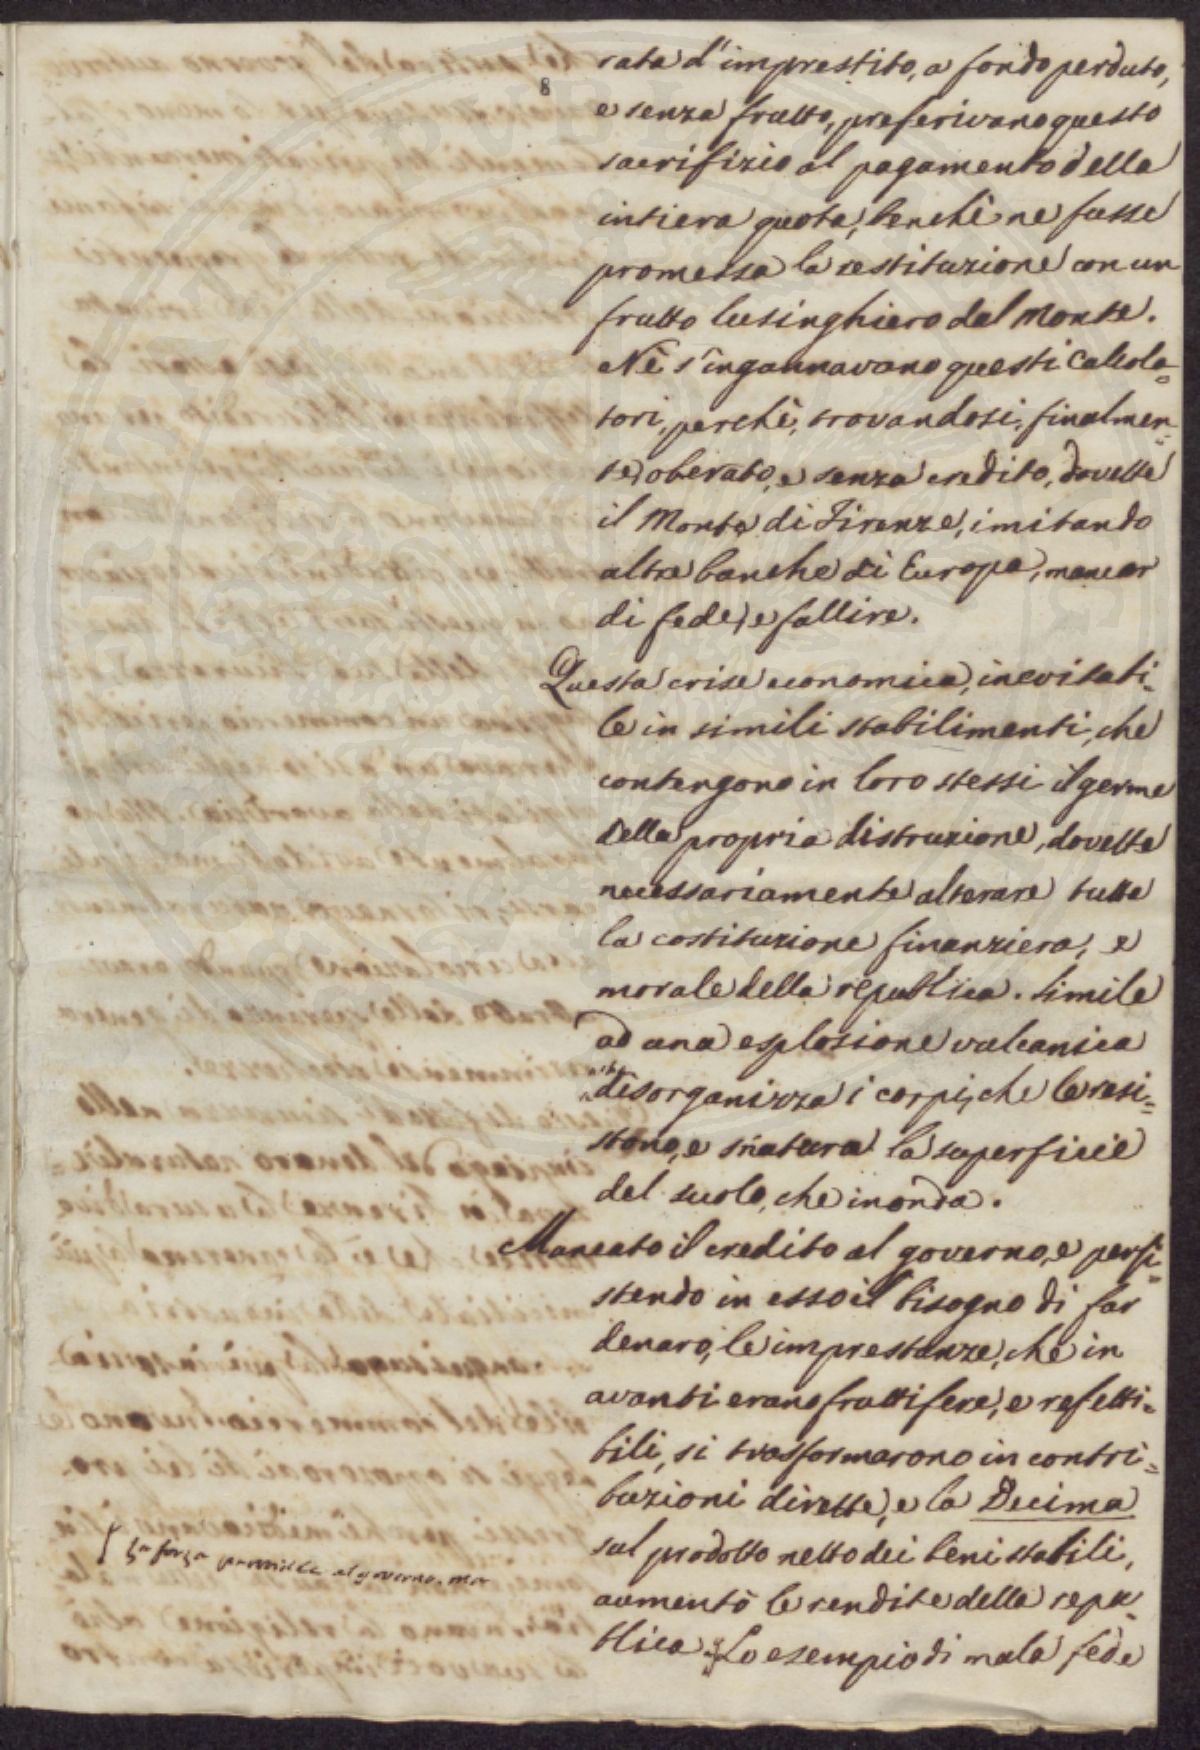 8
rata d'imprestito, a fondo perduto,
e senza frutto, preferivano questo
sacrifizio al pagamento della
intiera quota, benchè ne fusse
promessa la restituzione con un
frutto lusinghiero dal Monte.
Nè s'ingannavano questi Calcola=
tori, perchè, trovandosi, finalmen=
te, oberato, e senza credito, dovette
il Monte di Firenze, imitando
altre banche di Europa, mancar
di fede, e fallire.
Questa crise economica, inevitabi=
le in simili stabilimenti, che
contengono in loro stessi il germe
della propria distruzione, dovette
necessariamente alterare tutta
la costituzione finanziera, e
morale della republica. Simile
ad una esplosione vulcanica
che disorganizza i corpi, che le resi=
stono, e snatura la superficie
del suolo, che inonda.
Mancato il credito al governo, e persi=
stendo in esso il bisogno di far
denaro, le imprestanze, che in
avanti erano fruttifere, e refetti=
bili, si trasformarono in contri=
buzioni dirette, e la Decima
sul prodotto netto dei beni stabili,
aumentò le rendite della repu=
blica. Lo esempio di mala fede
La forza al governo. ma